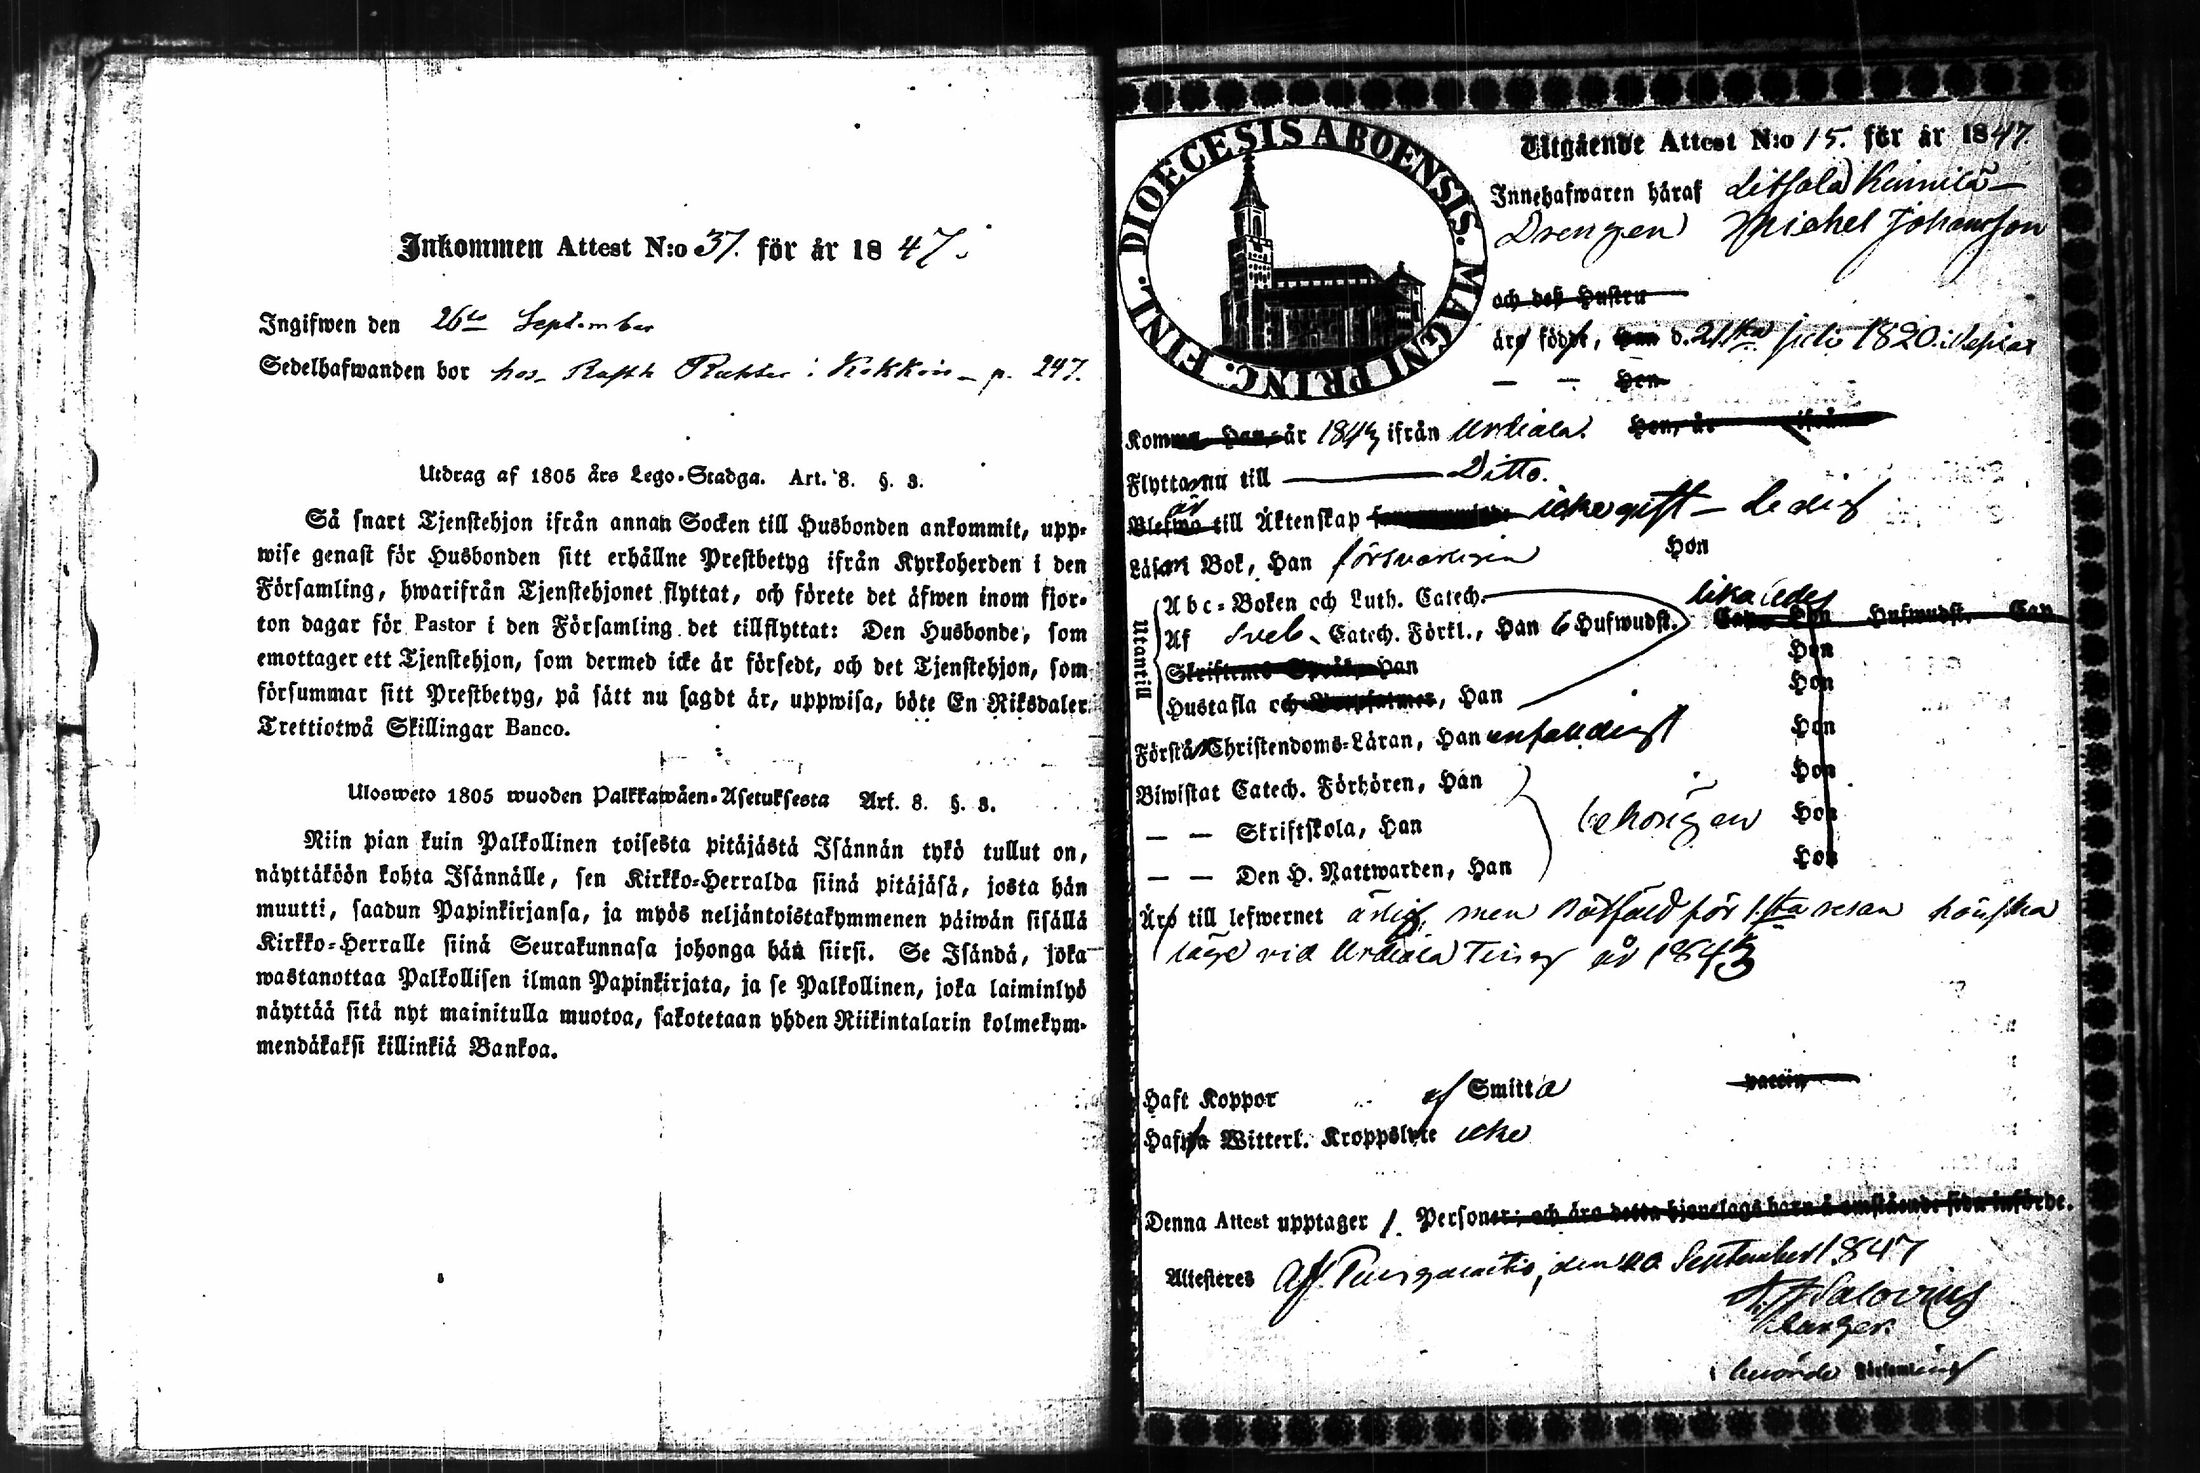 Inkommen Attest N:o 37. för år 1847.
Ingifwen den 26te September
Sedelhafwanden bor hos i p. 247.
Utdrag af 1805 års Lego-Stadga. Art. 8. §. 3.
Så snart Tjenstehjon ifrån annan Socken till Husbonden ankommit, upp-
wise genast för Husbonden sitt erhållne Prestbetyg ifrån Kyrkoherden i den
Församling, hwarifrån Tjenstehjonet flyttat, och förete det äfwen inom fjor-
ton dagar för Pastor i den Församling det tillflyttat: Den Husbonde, som
emottager ett Tjenstehjon, som dermed icke är försedt, och det Tjenstehjon, som
försummar sitt Prestbetyg, på sätt nu sagdt är, uppwisa, böte En Riksdaler
Trettiotwå Skillingar Banco.
Ulosweto 1805 wuoden Palkkawäen-Asetuksesta Art. 8. §. 3.
Niin pian kuin Palkollinen toisesta pitäjästä Isännän tykö tullut on,
näyttäköön kohta Isännälle, sen Kirkko-Herralda siinä pitäjäsä, josta hän
muutti, saadun Papinkirjansa, ja myös neljäntoistakymmenen päiwän sisällä
Kirkko-Herralle siinä Seurakunnasa johonga hän siirsi. Se Isändä, joka
wastanottaa Palkollisen ilman Papinkirjata, ja se Palkollinen, joka laiminlyö
näyttää sitä nyt mainitulla muotoa, sakotetaan yhden Riikintalarin kolmekym-
mendäkaksi killinkiä Bankoa.
DIOECESIS ABOENSIS. MAGNI PRINC. FINL.
Utgående Attest N:o 15. för år 1847.
Innehafwaren häraf
Drengen Michel Johansson
och deß Hustru
äro född, Han d. 21sta juli 1820.
— — Hon
Komma Han, år 1843 ifrån Urdiala. Hon, år ifrån
Flytta nu till — Ditto.
är
Blefwo till Äktenskap icke gift — Ledig
Läsa i Bok, Han försvarligen Hon
Abc-Boken och Luth. Catech.
likaledes
Utantill
Af Sveb. Catech. Förkl., Han 6 Hufwudst. Cap. Hon Hufwudst. Cap
Skriftenes Språk, Han Hon
Hustafla och, Han Hon
Förstå Christendoms-Läran, Han enfalldigt Hon
Biwistat Catech. Förhören, Han Hon
— — Skriftskola, Han behörigen Hon
— — Den H. Nattwarden, Han Hon
Äro till lefwernet ärlig, men Bötfäld för 1sta resan
vid Urdiala Ting år 1843
Haft Koppor af Smitta vaccin
Hafwa Witterl. Kroppslyte icke
Denna Attest upptager 1. Personer; och äro detta hjonelags barn å omstående sida införde.
Attesteres den September 1847
Salovius